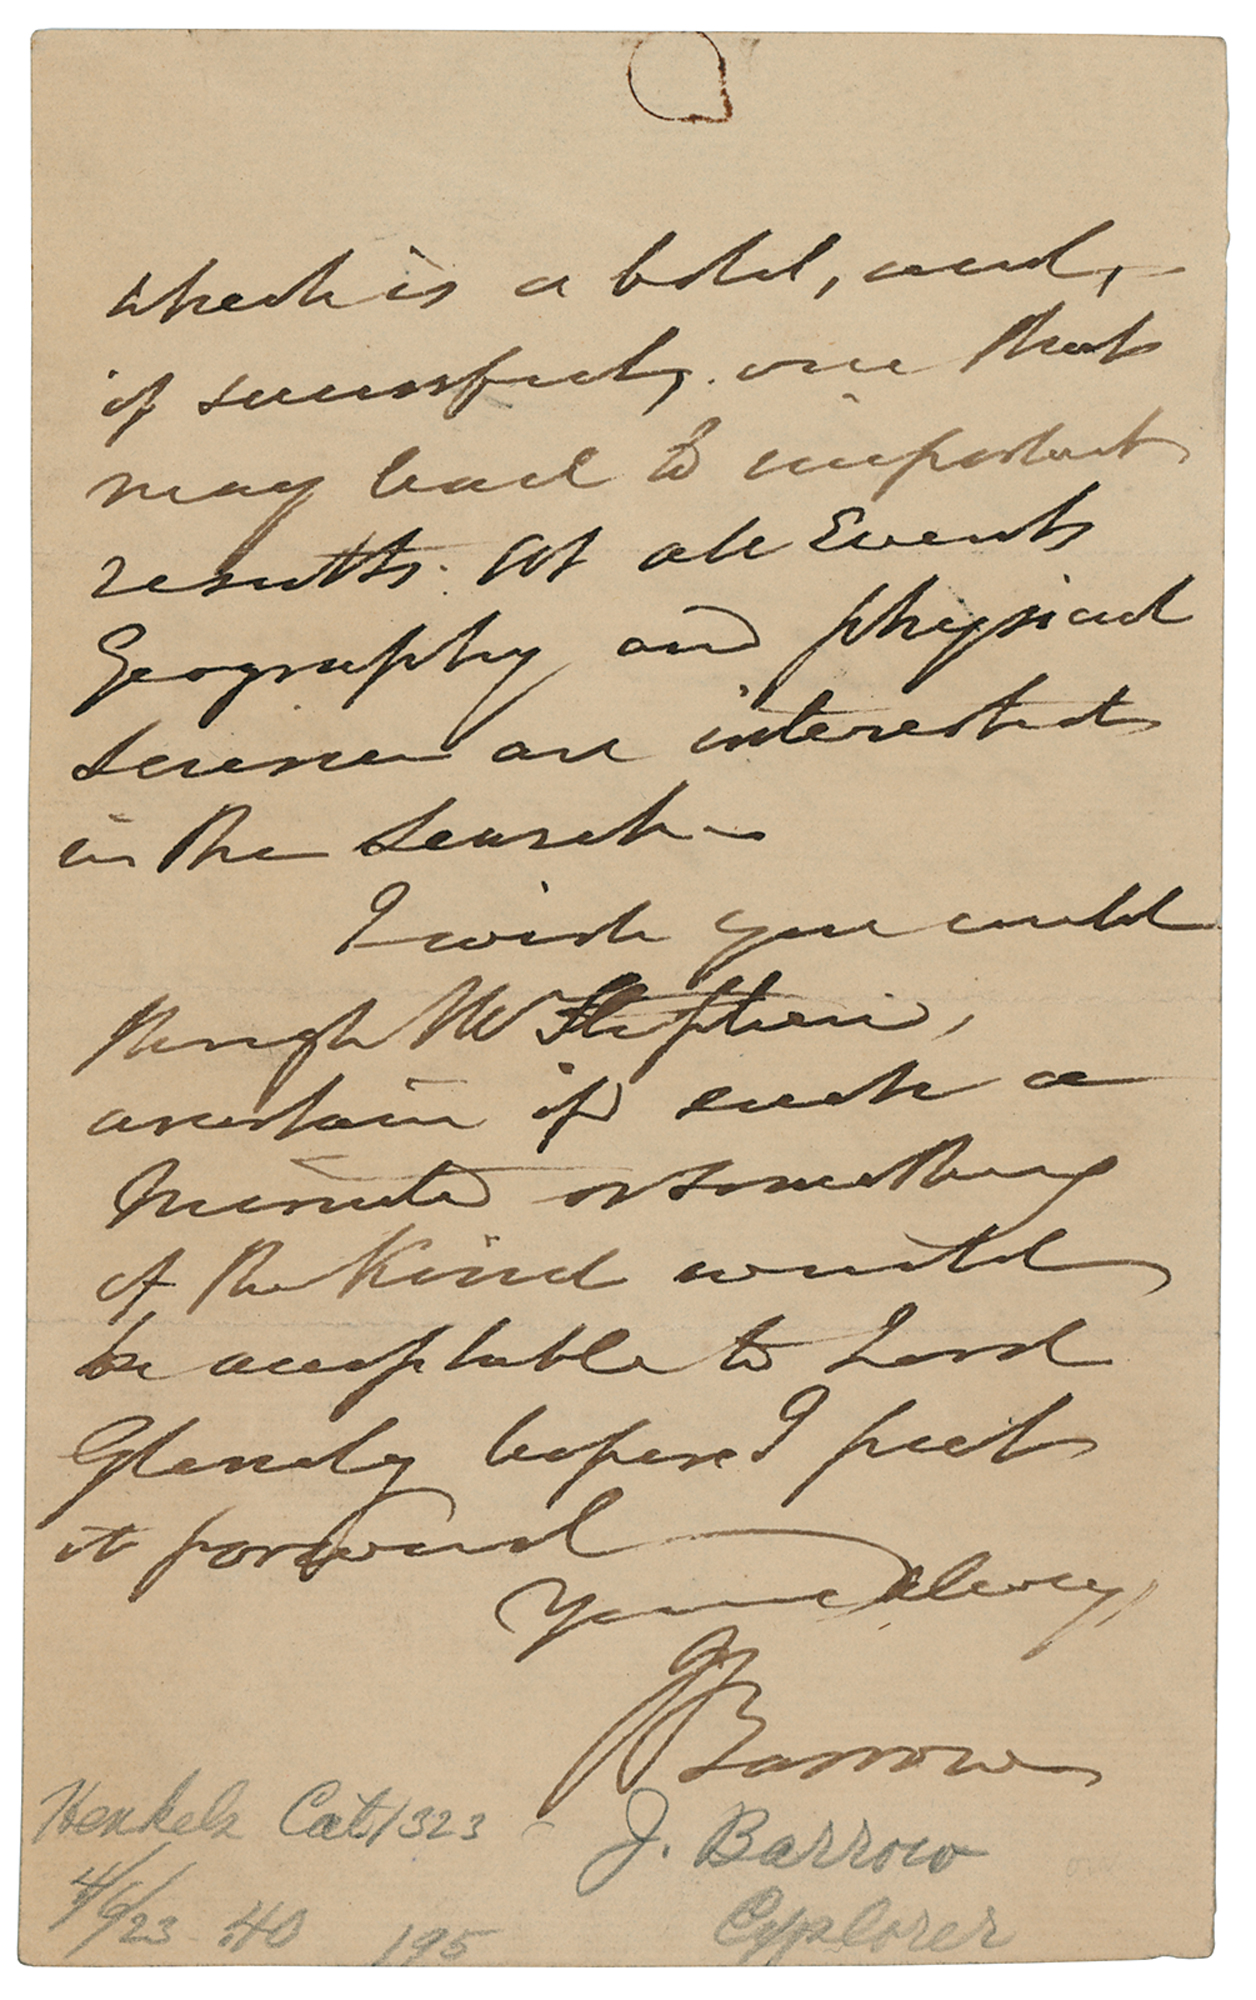 which is a bold, and, –
if successful, one that
may lead to important
results. At all Events
Geography and physical
Science are interested
in the Search –
I wish you could
through Mr Stephen,
ascertain if such a
Minute or something
of the Kind would
be acceptable to Lord
Glenelg before I put
it forward
Yours
J Barrow
Henkels Cat 1323 – J. Barrow
4/6/23 40 195 Explorer